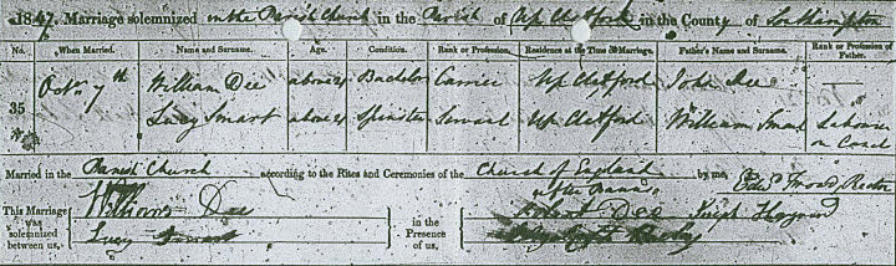 1847. Marriage solemnized in the Parish Church in the Parish of Up Clatford in the County of Southampton
No. When Married. Name and Surname. Age. Condition. Rank or Profession. Residence at the Time of Marriage. Father's Name and Surname. Rank or Profession of Father.
35 Octr 7th William Dee above 21 Bachelor Carrier Up Clatford John Dee
Lucy Smart above 21 Spinster Servant Up Clatford William Smart Labourer
Married in the Parish Church according to the Rites and Ceremonies of the Church of England after Banns by me, Edwd Frowd, Rector
This Marriage was solemnized between us, William Dee in the Presence of us, Robert Dee Joseph
Lucy Smart